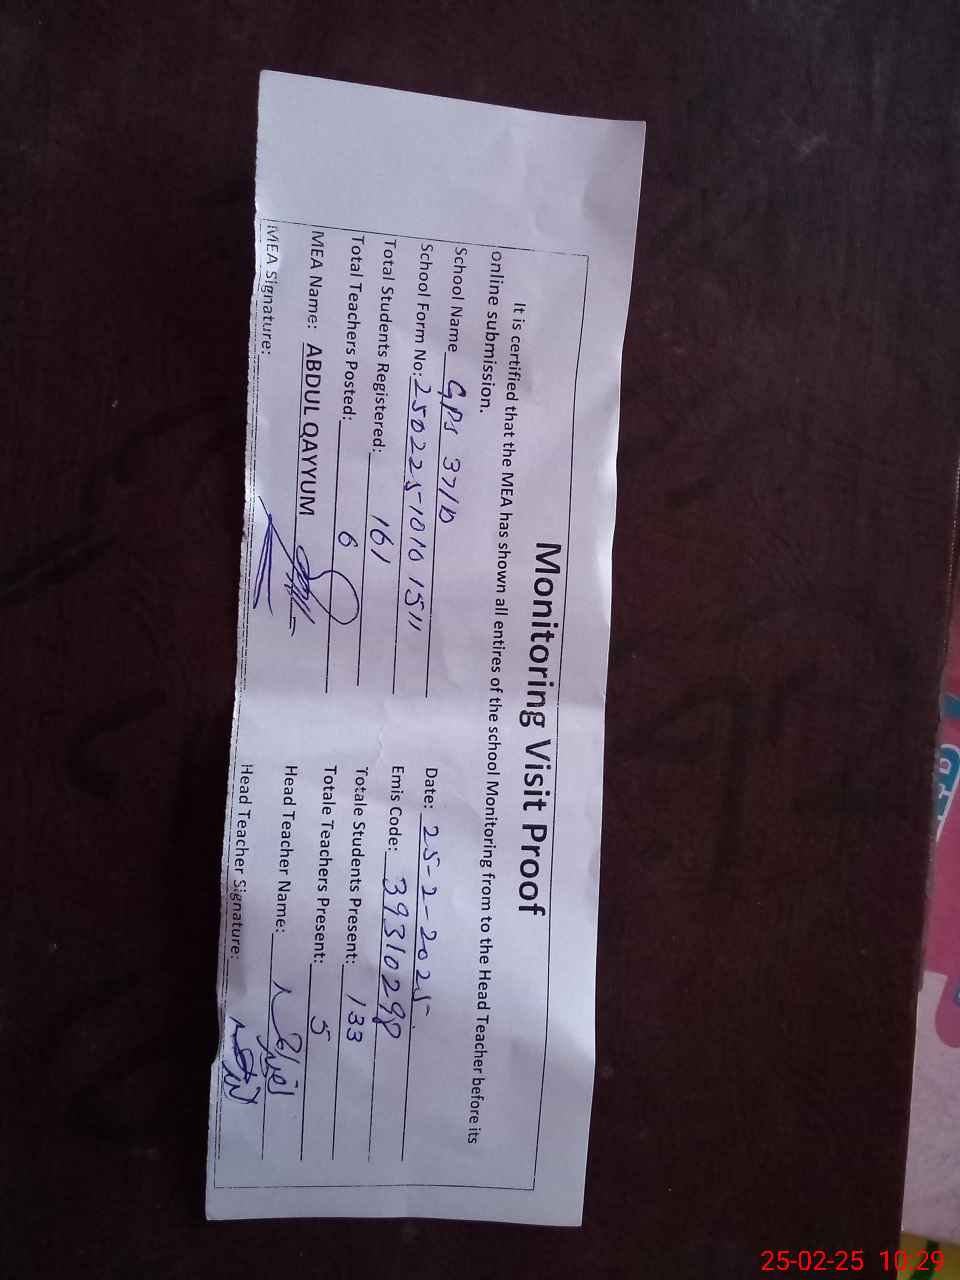 Monitoring Visit Proof
It is certified that the MEA has shown all entires of the school Monitoring from to the Head Teacher before its
online submission.
School Name GPS 37/D Date: 25-2-2025
School Form No: 250225-1010 1511 Emis Code: 39310298
Total Students Registered: 161 Totale Students Present: 133
Total Teachers Posted: 6 Totale Teachers Present: 5
MEA Name: ABDUL QAYYUM Head Teacher Name:
MEA Signature: Head Teacher Signature:
25-02-25 10:29